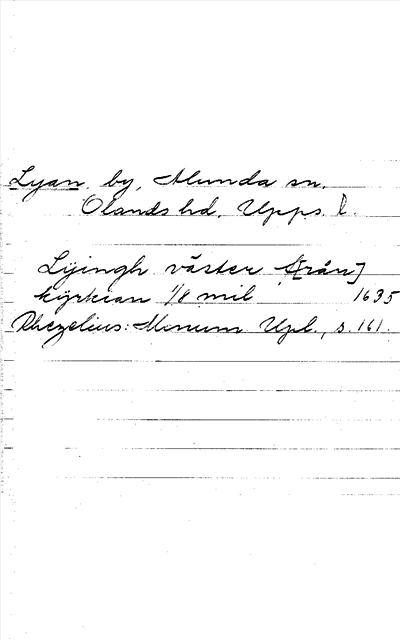 Lyan, by, Alunda sn.
Olands hd. Upps. l.
Lÿingh väster [från]
kÿrkian 1/8 mil 1635
Rhezelius: Monum. Upl., s. 161.